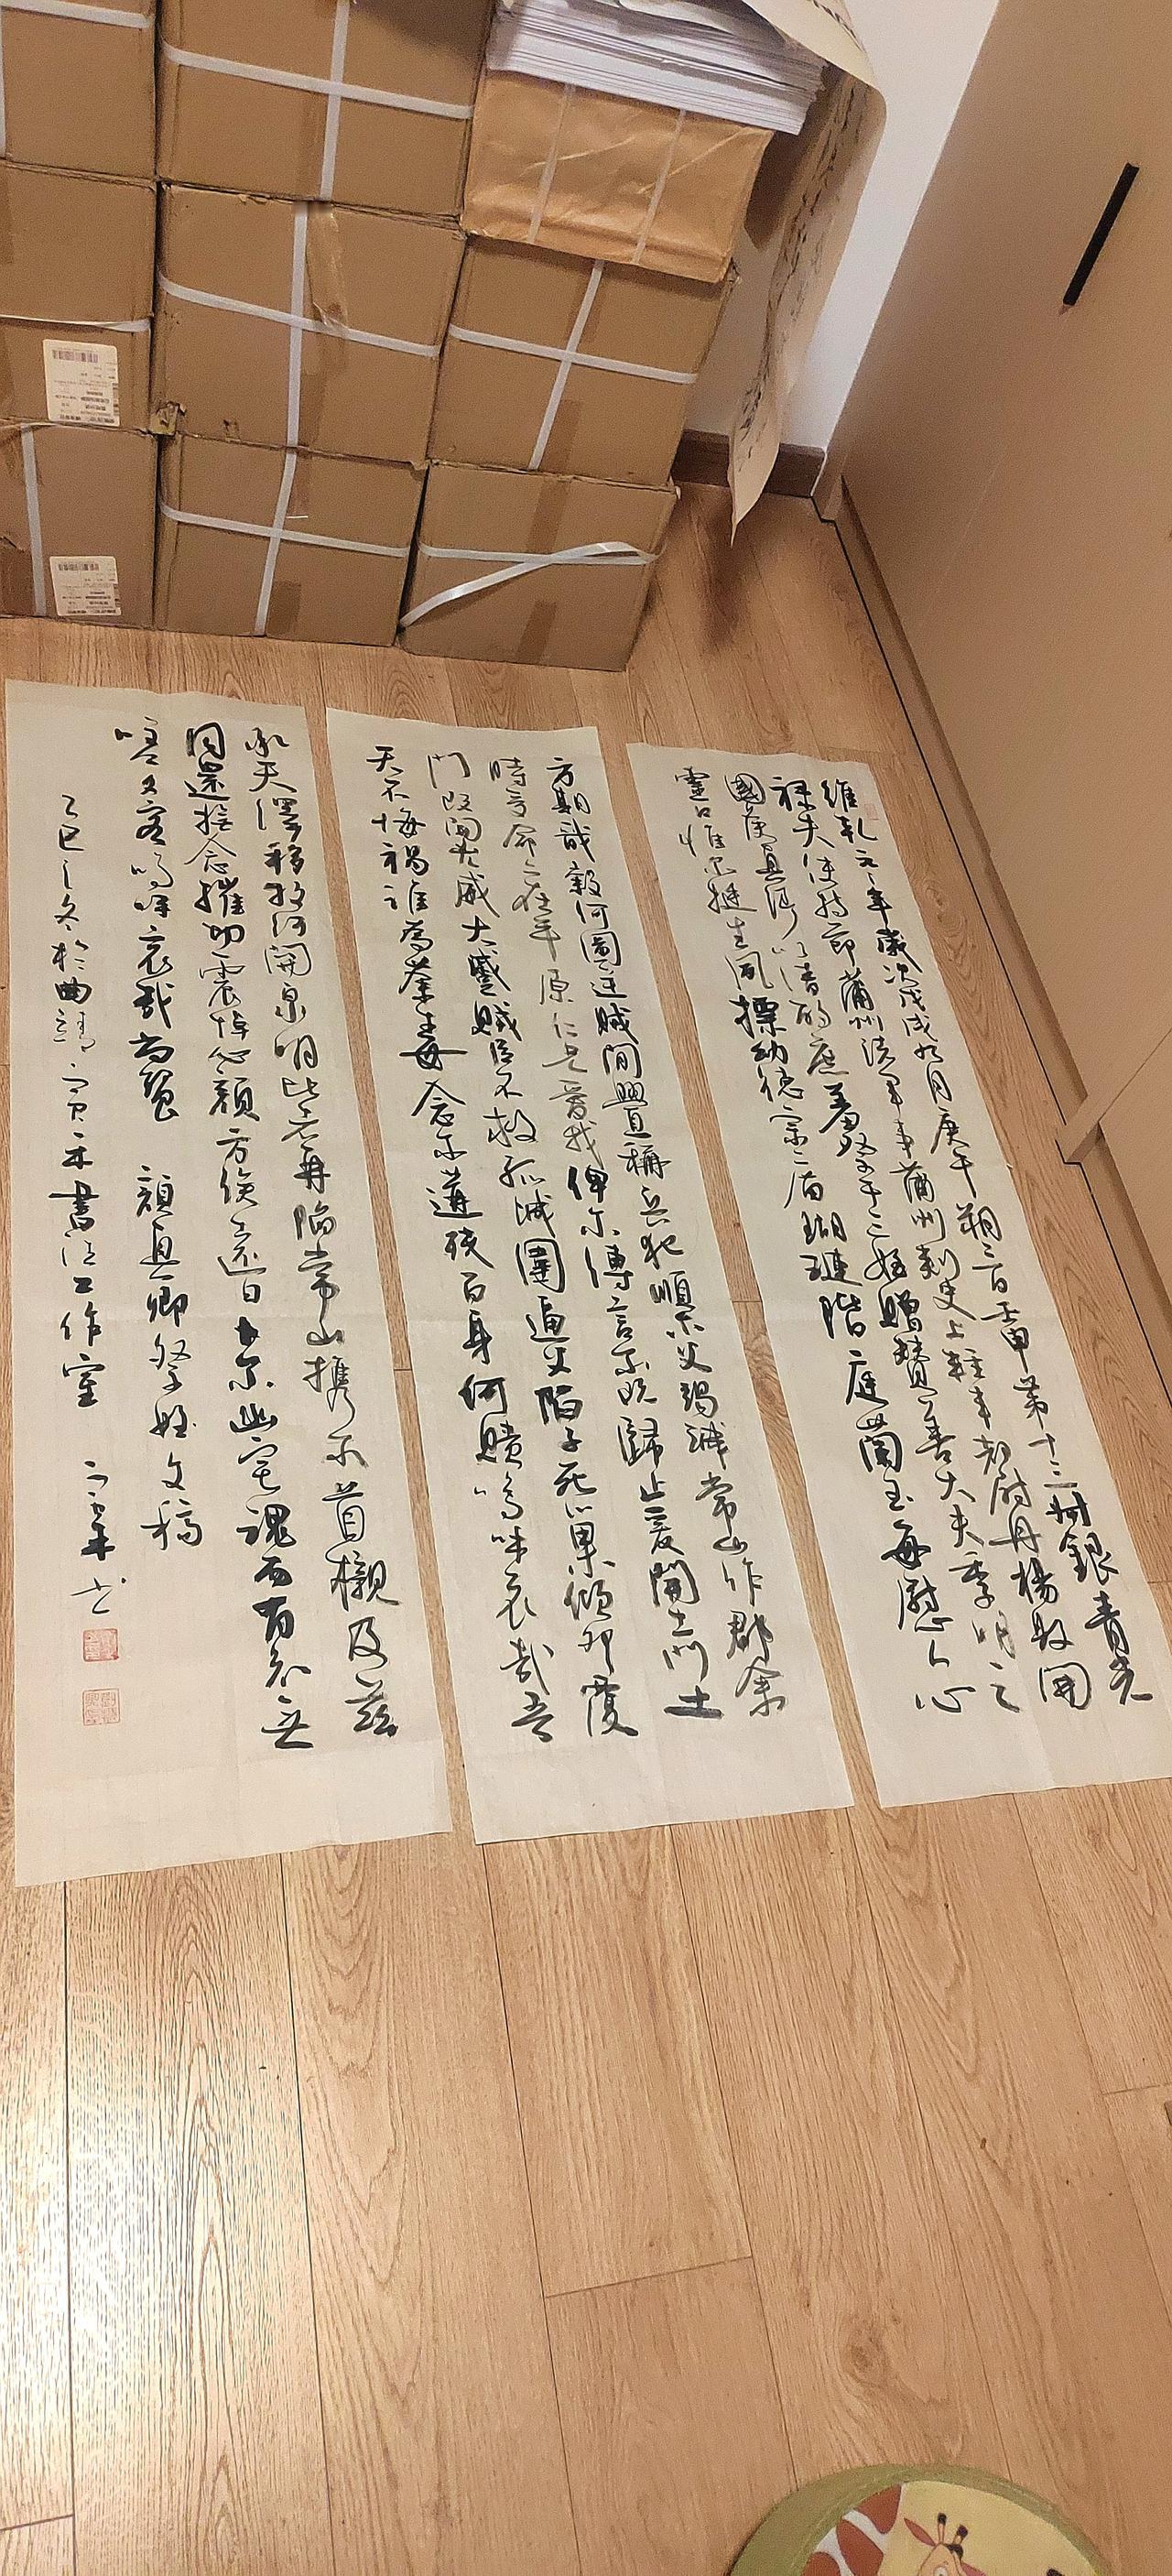 維乾元元年歲次戊戌九月庚午朔三日壬申第十三叔銀青光
祿夫使持節蒲州諸軍事蒲州刺史上輕車都尉丹楊縣開
國侯真卿以清酌庶羞祭于亡姪贈贊善大夫季明之
靈曰惟爾挺生夙標幼德宗廟瑚璉階庭蘭玉每慰人心
方期戩穀何圖逆賊間釁稱兵犯順爾父竭誠常山作郡余
時受命亦在平原仁兄愛我俾爾傳言爾既歸止爰開土門土
門既開凶威大蹙賊臣不救孤城圍逼父陷子死巢傾卵覆
天不悔禍誰為荼毒念爾遘殘百身何贖嗚呼哀哉吾
承天澤移牧河關泉明比者再陷常山攜爾首櫬及茲
同還撫念摧切震悼心顏方俟遠日卜爾幽宅魂而有知無
嗟久客嗚呼哀哉尚饗 顏真卿祭姪文稿
乙巳之冬於曲靖書法工作室 书